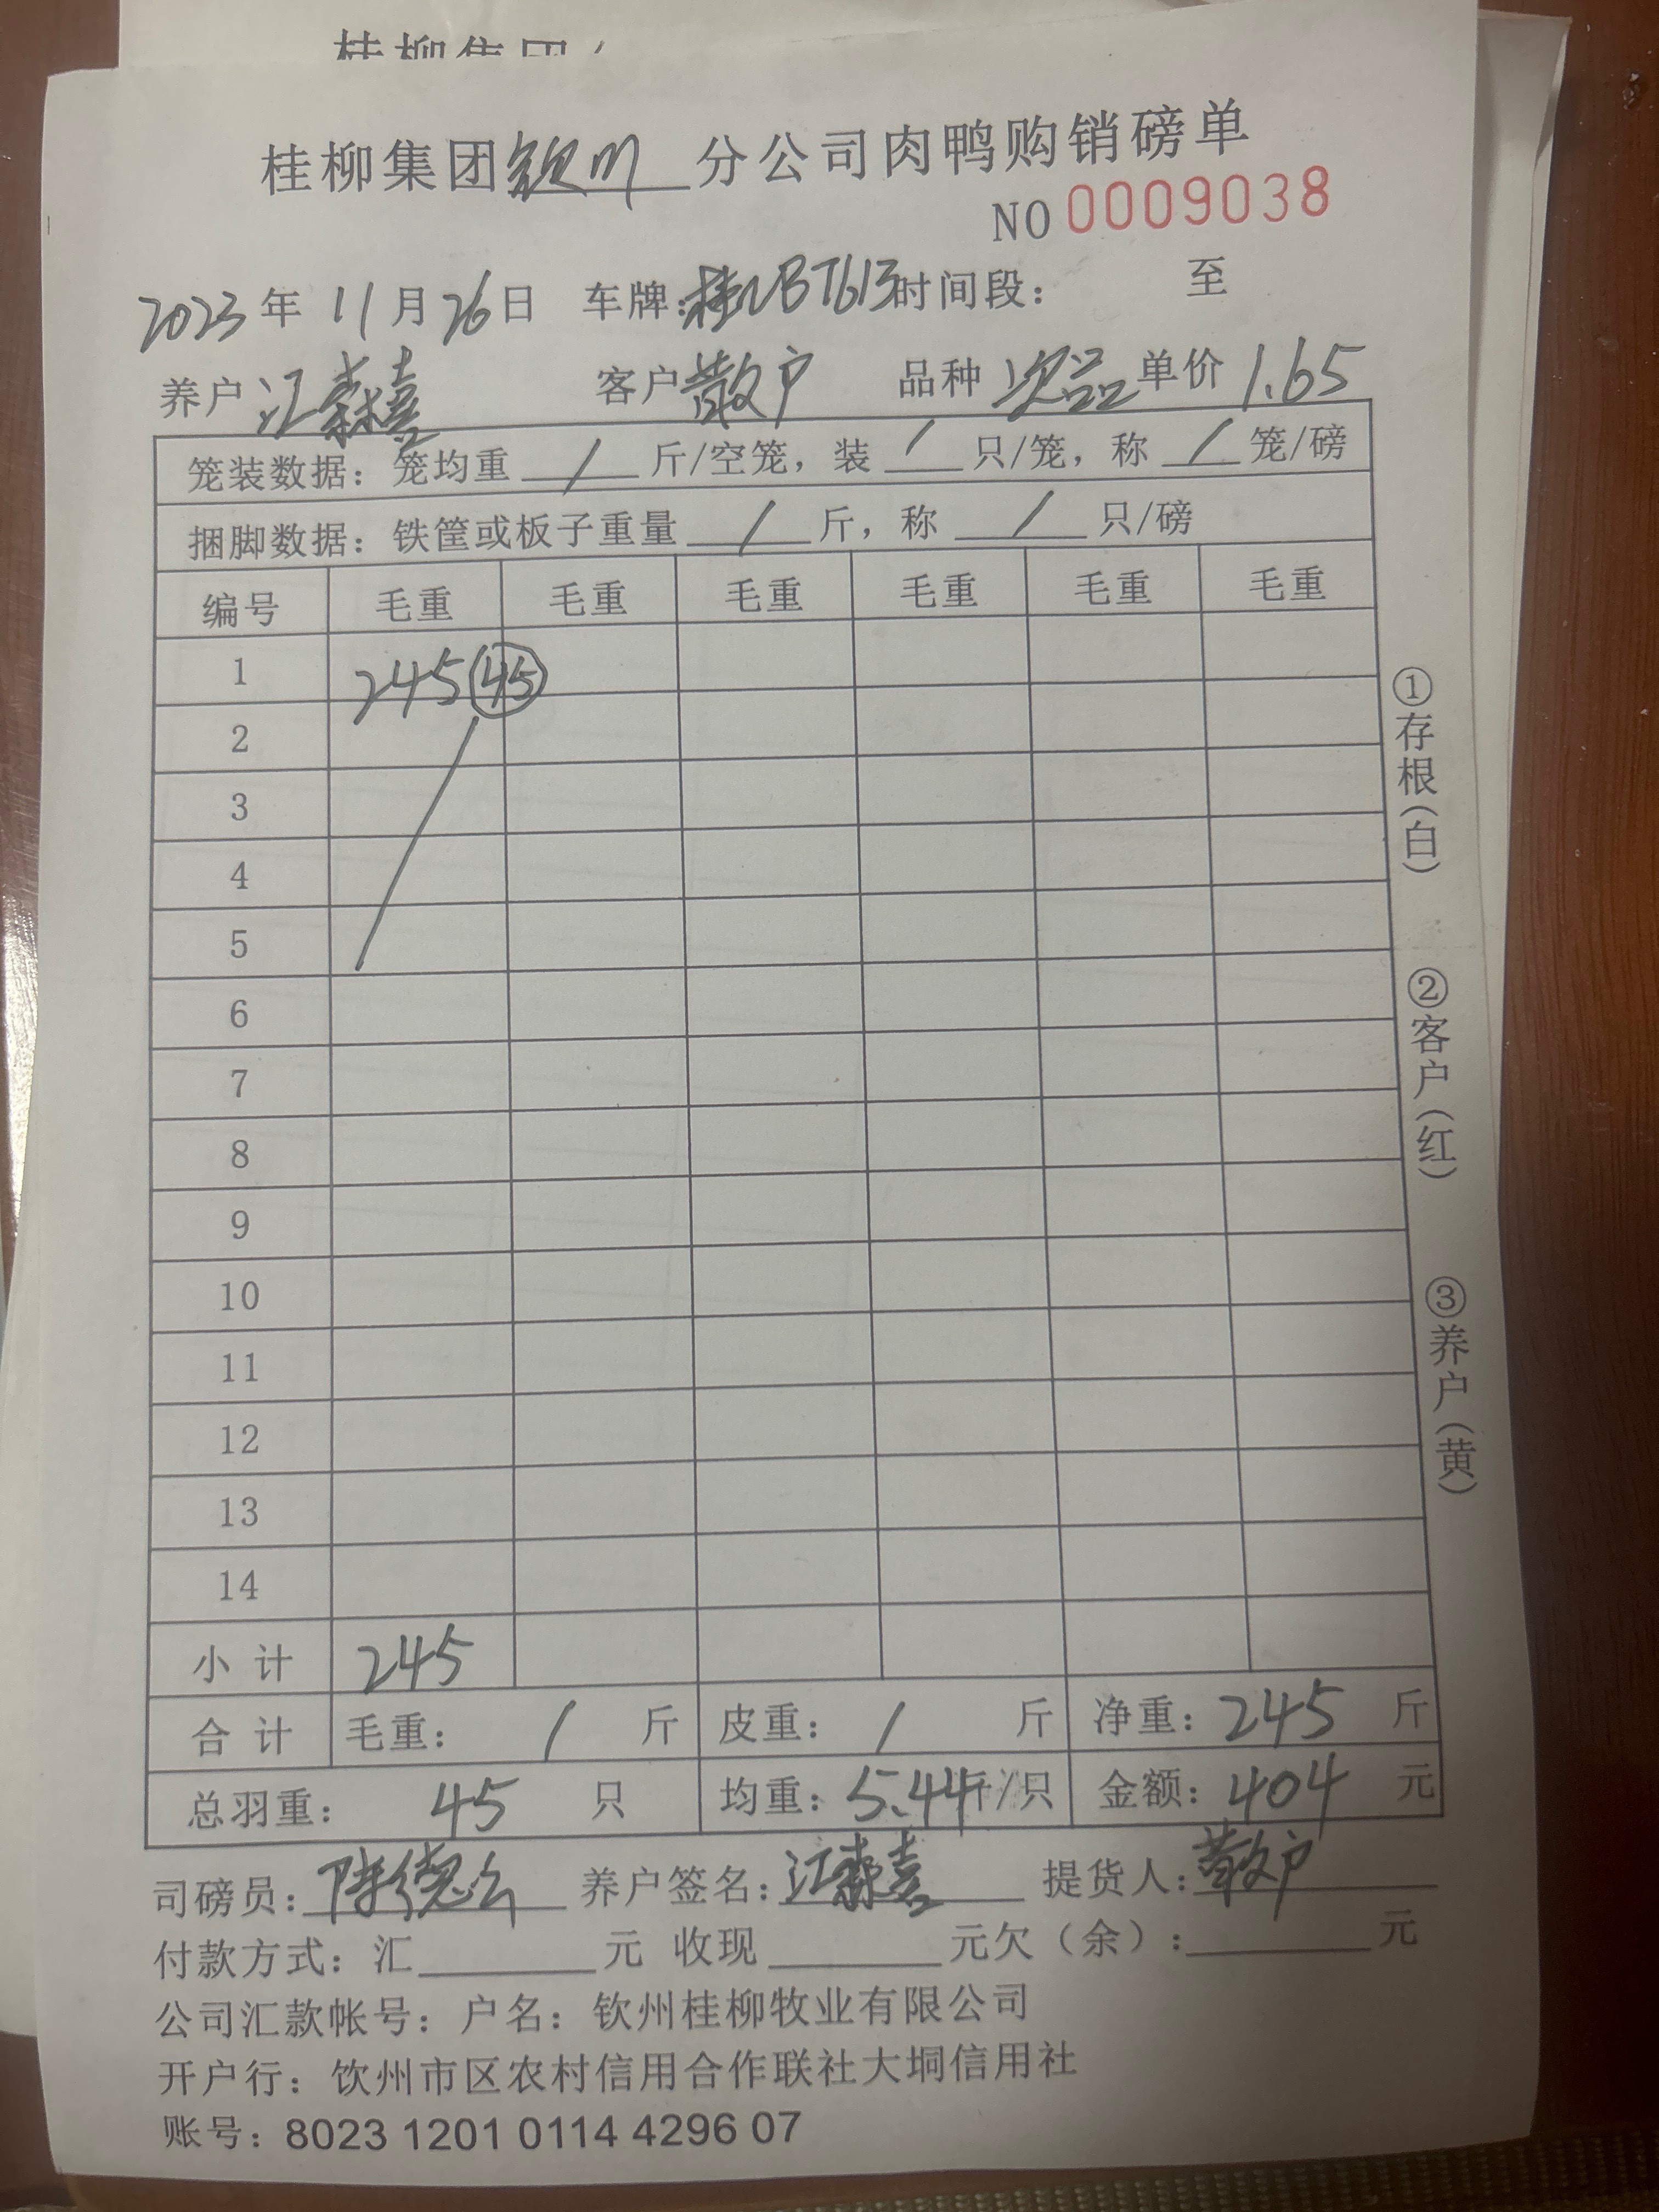 桂柳集团(
桂柳集团钦州分公司肉鸭购销磅单
NO 0009038
2023年11月26日 车牌:桂NBT613时间段: 至
养户 江森喜 客户 散户 品种 次品 单价 1.65
笼装数据: 笼均重 / 斤/空笼, 装 / 只/笼, 称 / 笼/磅
捆脚数据: 铁筐或板子重量 / 斤, 称 / 只/磅
编号 毛重 毛重 毛重 毛重 毛重 毛重
1 245 45
2
3
4
5
6
7
8
9
10
11
12
13
14
小计 245
合计 毛重: / 斤 皮重: / 斤 净重: 245 斤
总羽重: 45 只 均重: 5.44斤/只 金额: 404 元
司磅员: 陈德 养户签名: 江森喜 提货人: 散户
付款方式: 汇 元 收现 元欠(余): 元
公司汇款帐号: 户名: 钦州桂柳牧业有限公司
开户行: 钦州市区农村信用合作联社大垌信用社
账号: 8023 1201 0114 4296 07
①存根(白)
②客户(红)
③养户(黄)